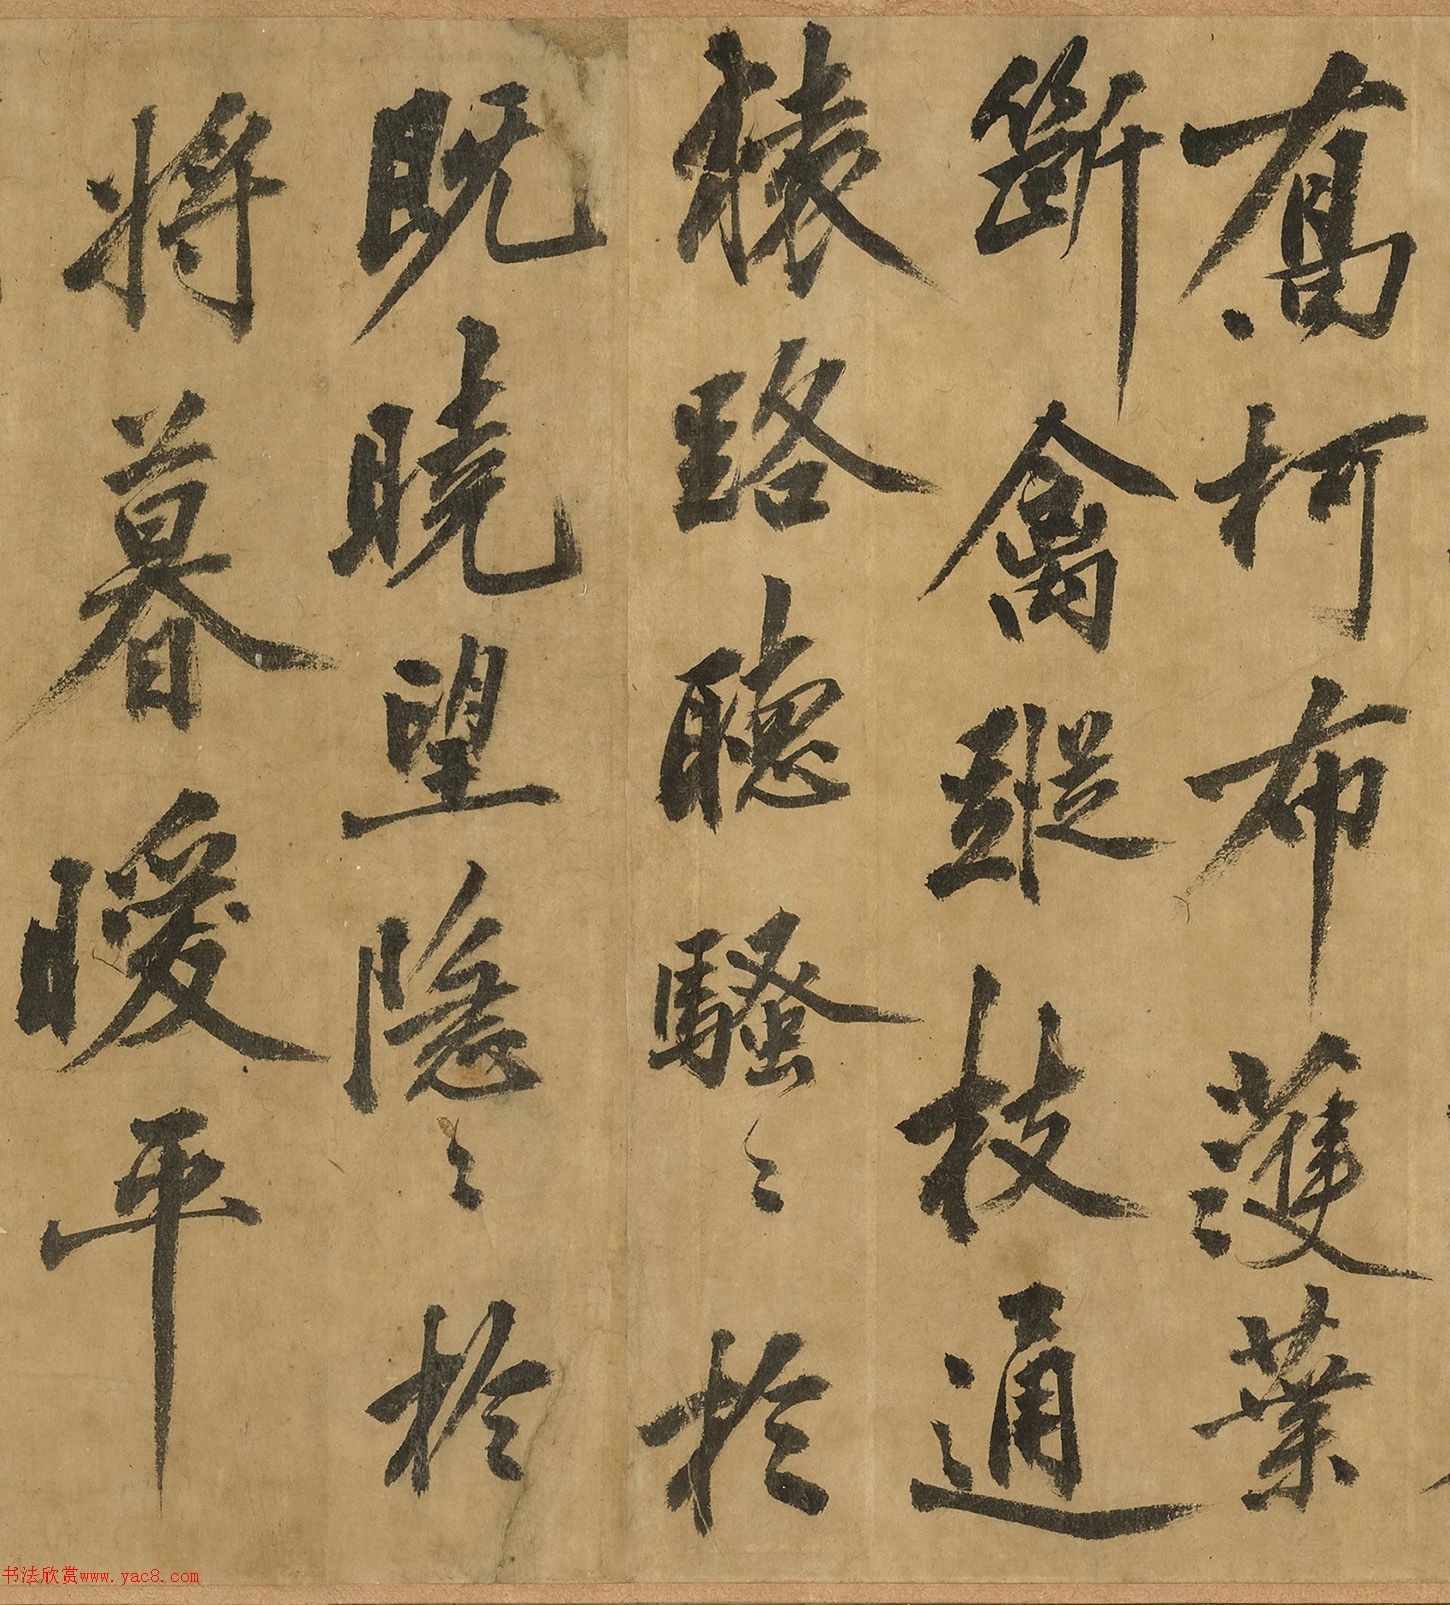 喬柯布濩葉
斷禽蹤枝通
猿路聽騷〻於
既曉望隱〻於
將暮曖平
书法欣赏www.yac8.com